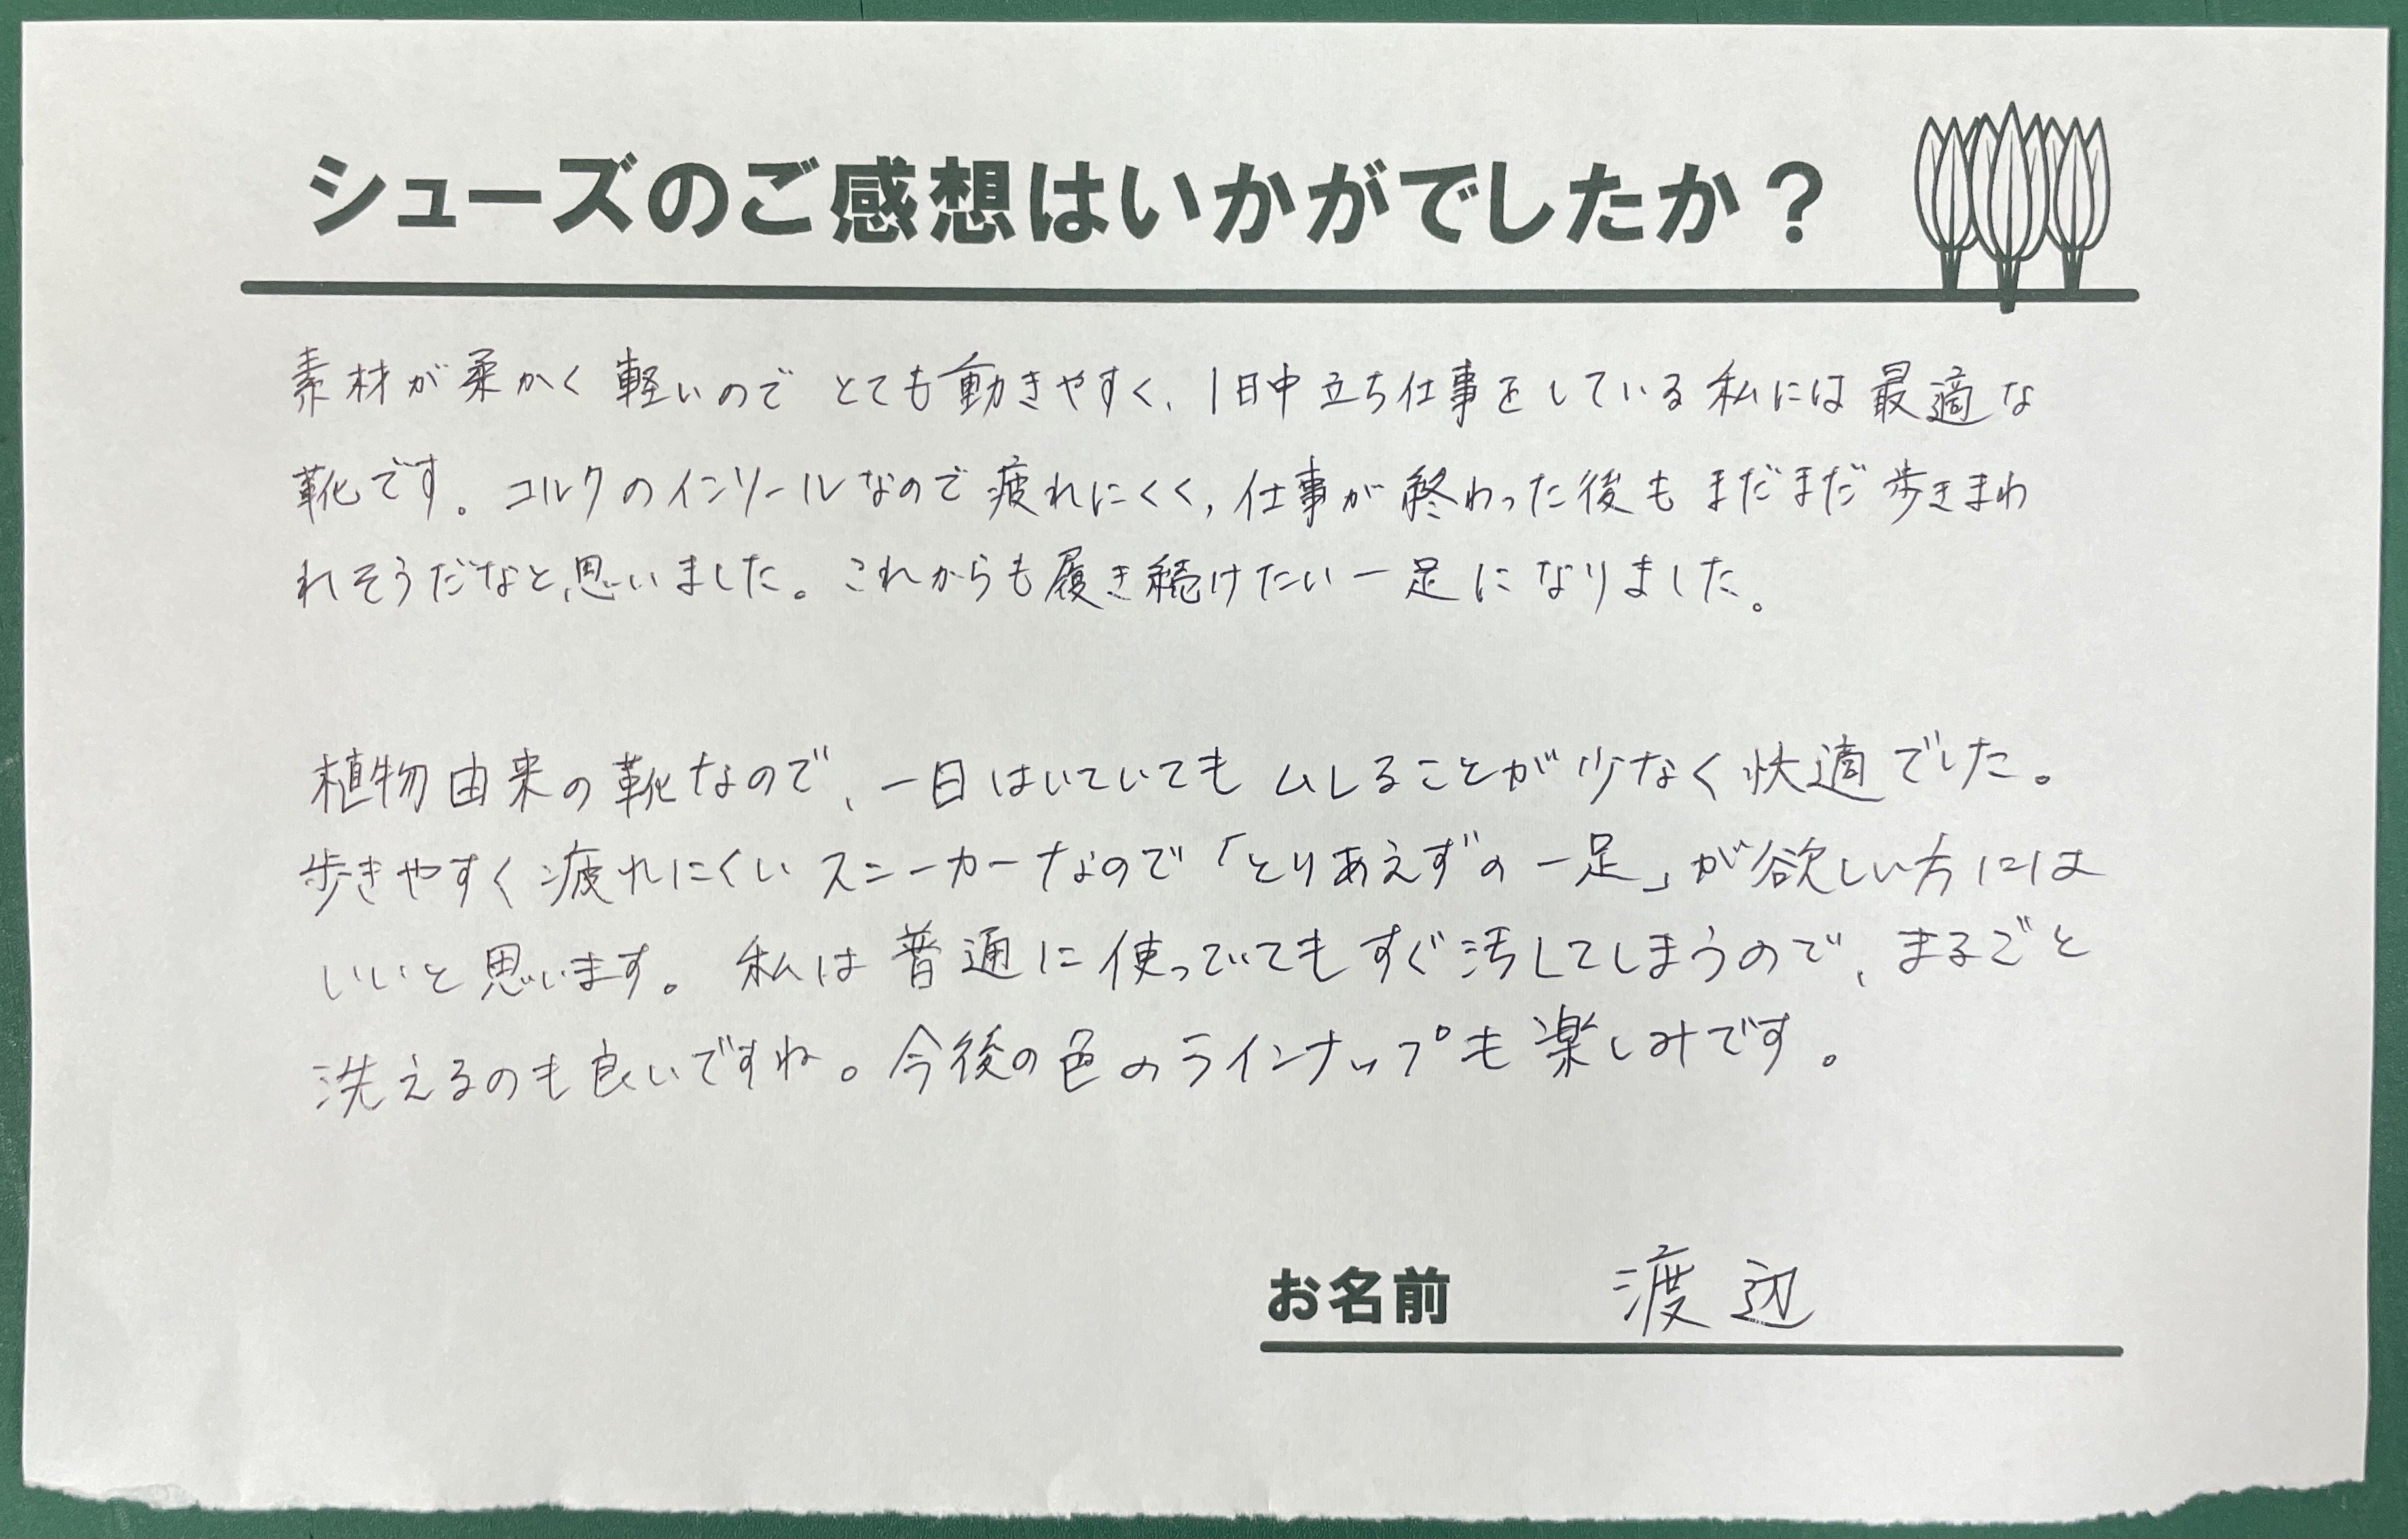 シューズのご感想はいかがでしたか？
素材が柔かく軽いのでとても動きやすく、1日中立ち仕事をしている私には最適な
靴です。コルクのインソールなので疲れにくく、仕事が終わった後もまだまだ歩きまわ
れそうだなと思いました。これからも履き続けたい一足になりました。
植物由来の靴なので、一日はいていてもムレることが少なく快適でした。
歩きやすく疲れにくいスニーカーなので「とりあえずの一足」が欲しい方には
いいと思います。私は普通に使っていてもすぐ汚してしまうので、まるごと
洗えるのも良いですね。今後の色のラインナップも楽しみです。
お名前 渡辺